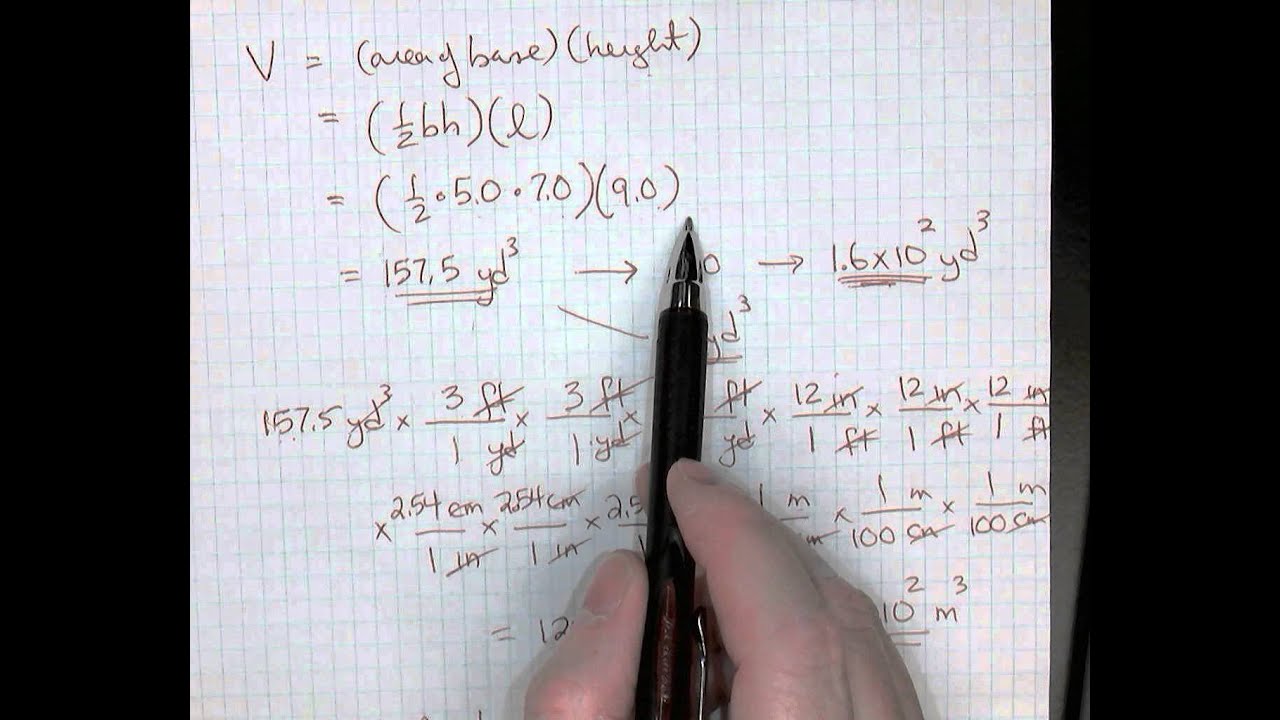 V = (area of base)(height)
= (½bh)(l)
= (½ • 5.0 • 7.0)(9.0)
= 157.5 yd³ → 0 → 1.6×10² yd³
yd³
157.5 yd³ × 3 ft/1 yd × 3 ft/1 yd × ft/yd × 12 in/1 ft × 12 in/1 ft × 12 in/1 ft
× 2.54 cm/1 in × 2.54 cm/1 in × 2.5 1 m × 1 m/100 cm × 1 m/100 cm
= 12 10² m³